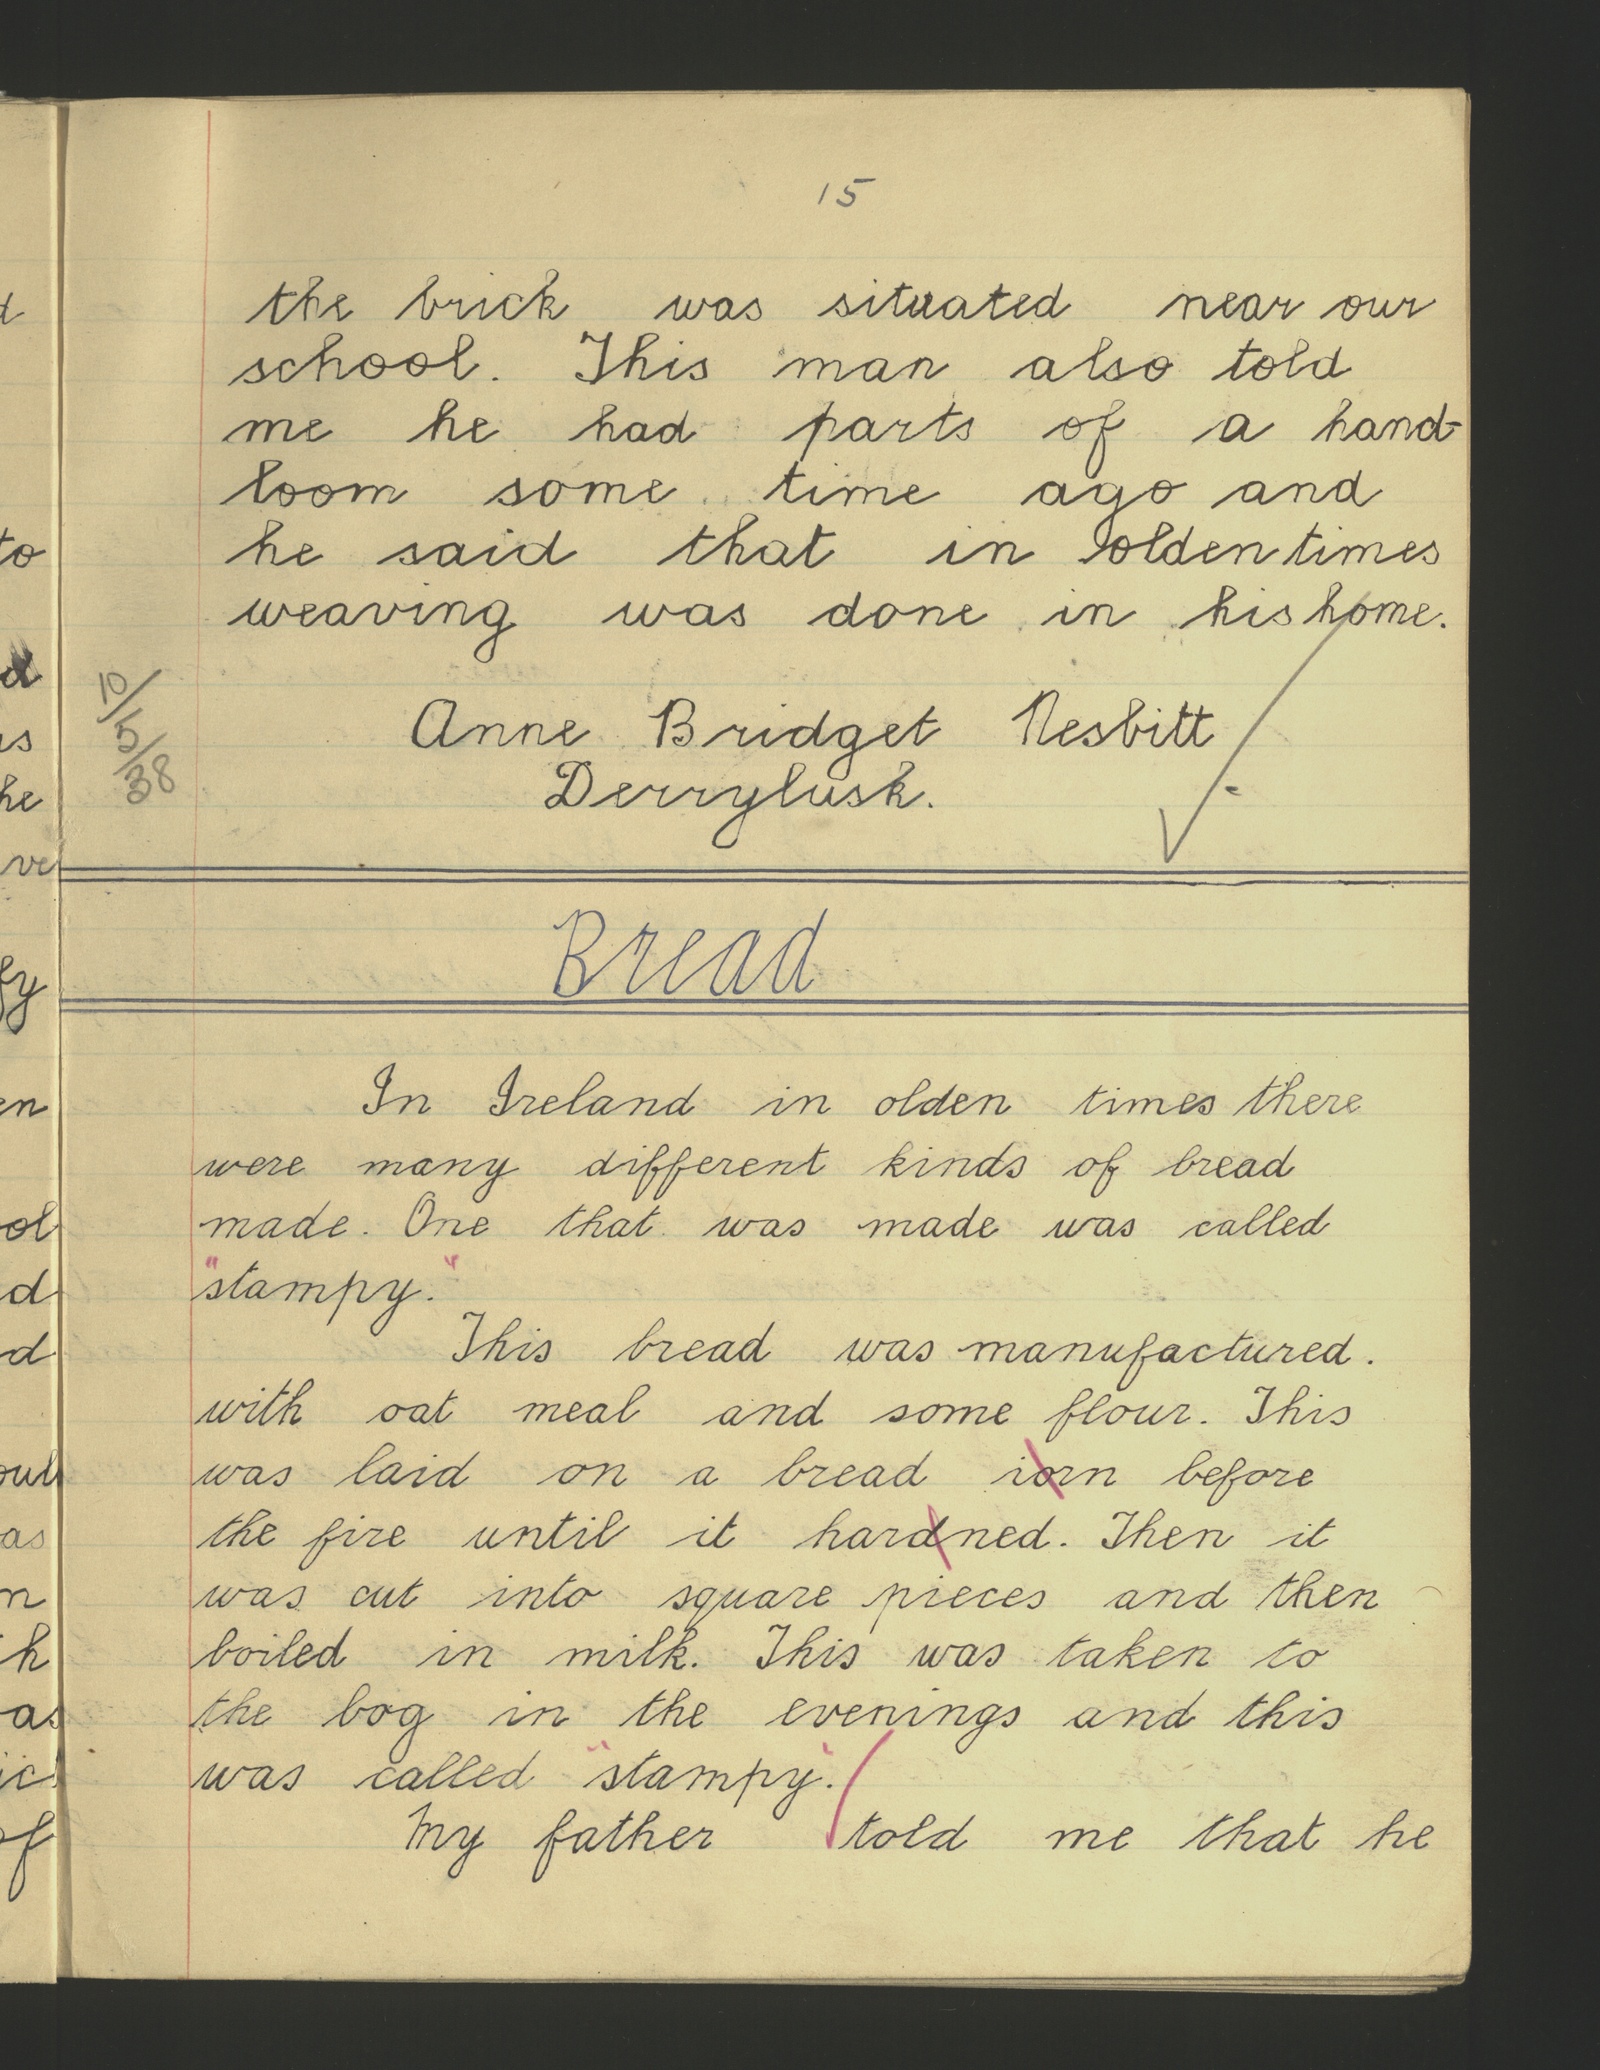 15
the brick was situated near our
school. This man also told
me he had parts of a hand-
loom some time ago and
he said that in olden times
weaving was done in his home.
10/5/38
Anne Bridget Nesbitt
Derrylusk.
Bread
In Ireland in olden times there
were many different kinds of bread
made. One that was made was called
"stampy."
This bread was manufactured.
with oat meal and some flour. This
was laid on a bread iorn before
the fire until it hardned. Then it
was cut into square pieces and then
boiled in milk. This was taken to
the bog in the evenings and this
was called "stampy".
My father told me that he